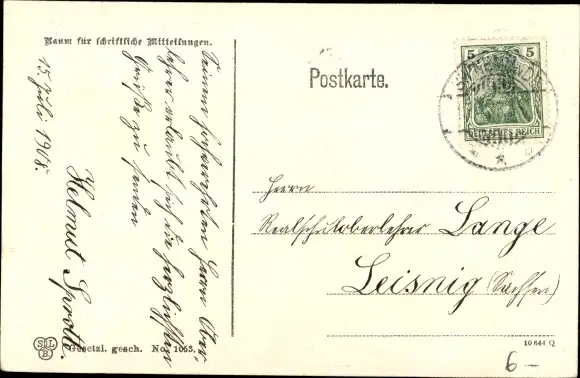 Raum für schriftliche Mitteilungen.
Postkarte.
5 5
DEUTSCHES REICH
Seinem hochverehrten Herrn Ober-
lehrer erlaubt sich die herzlichsten
Grüße zu senden
Helmut Sprotte.
15. Juli 1908.
Herrn
Realschuloberlehrer Lange
Leisnig (Sachsen)
SLB
Gesetzl. gesch. No. 1053.
10 644 Q
6-